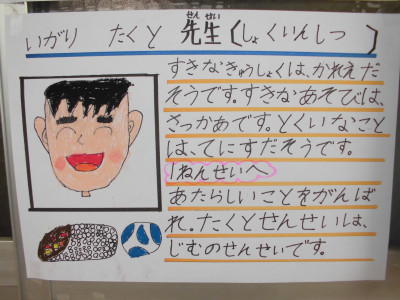 いがり たくと 先生〔しょくいんしつ 〕
せん せい
すきなきゅうしょくは、かれえだ
そうです。すきなあそびは、
さっかあです。とくいなこと
は、てにすだそうです。
1ねんせいへ
あたらしいことをがんば
れ。たくとせんせいは、
じむのせんせいです。